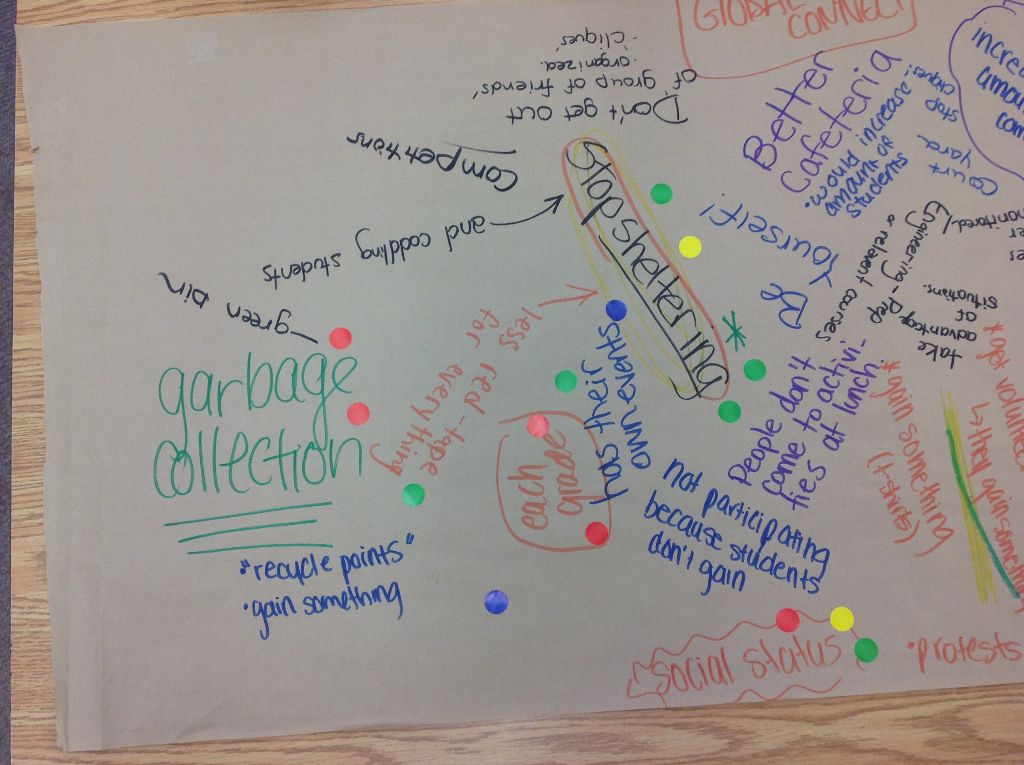 GLOBAL
CONNECT
Don't get out
of group of friends'
·organized.
-'cliques'
Competitions
Stop sheltering
and coddling students
green bin
garbage
collection
"recycle points"
·gain something
less red-tape
for everything
each
grade
has their
own events
Better
Cafeteria
·would increase
amount of
students
Court
yard
stop
cliques!
increa
amou
com
B
Yourself!
Engineering-Prep
or relevent courses
take
advantage
of
situations.
People don't
come to activi-
ties at lunch
Not participating
because students
don't gain
*gain something
(t-shirts)
*get voluntee
↳they gain somethi
social status
·protests